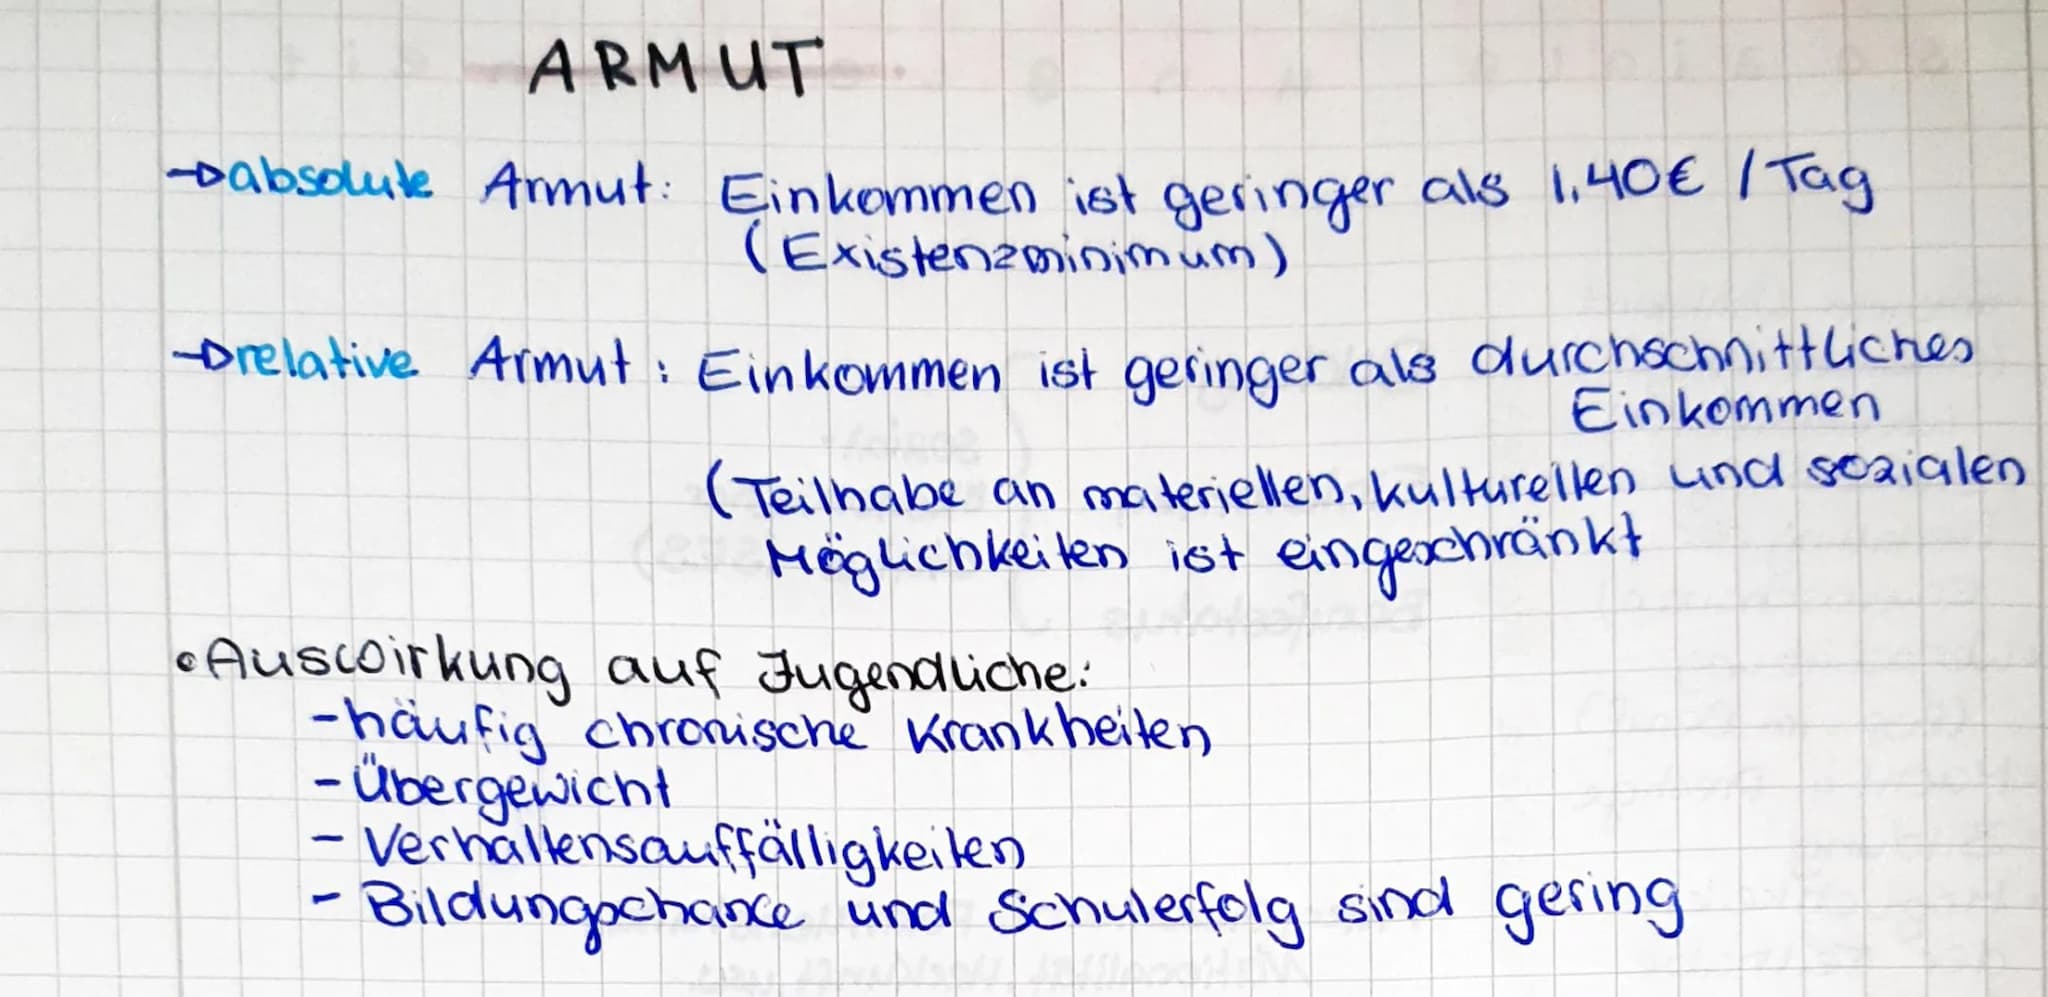 ARMUT
→absolute Armut: Einkommen ist geringer als 1,40€ / Tag
(Existenzminimum)
→relative Armut: Einkommen ist geringer als durchschnittliches
Einkommen
(Teilhabe an materiellen, kulturellen und sozialen
Möglichkeiten ist eingeschränkt
• Auswirkung auf Jugendliche:
- häufig chronische Krankheiten
- Übergewicht
- Verhaltensauffälligkeiten
- Bildungschance und Schulerfolg sind gering